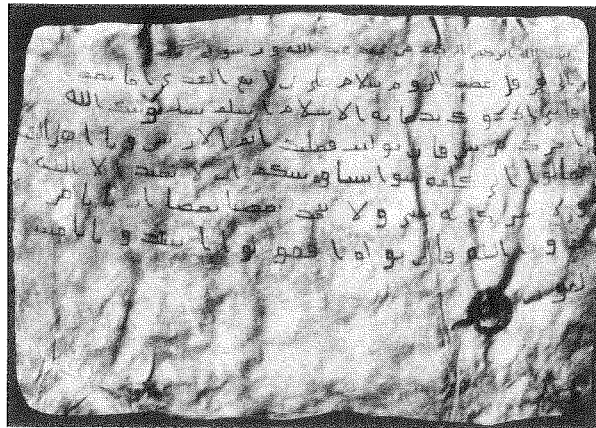 بسم الله الرحمن الرحيم من محمد عبد الله و رسوله
الى هرقل عظيم الروم سلام على من اتبع الهدى اما بعد
فانى ادعوك بدعايه الاسلام اسلم تسلم يوتك الله
اجرك مرتين فان توليت فعليك اثم و يا اهل
تعالوا الى كلمه سوا بيننا وبينكم الا نعبد الا الله
ولا نشرك به شى ولا يتخذ بعضنا بعضا اربابا من
دون الله فان تولوا فقولوا اشهدوا بانا مسـ
لمون